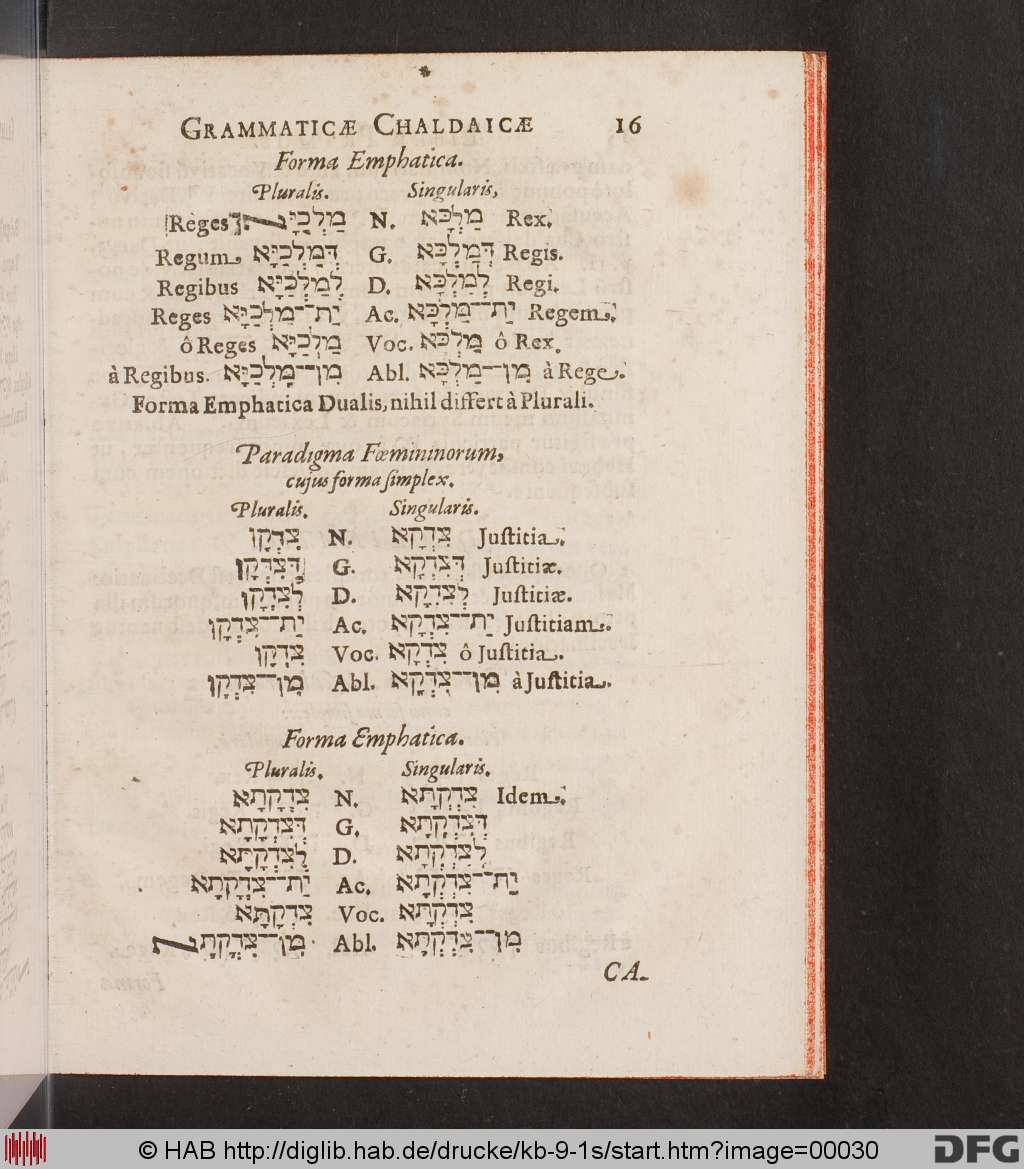 GRAMMATICÆ CHALDAICÆ 16
Forma Emphatica.
Pluralis. Singularis,
Reges מַלְכַיָּא N. מַלְכָּא Rex.
Regum, דְּמַלְכַיָּא G. דְּמַלְכָּא Regis.
Regibus לְמַלְכַיָּא D. לְמַלְכָּא Regi.
Reges יַת־מַלְכַיָּא Ac. יַת־מַלְכָּא Regem.
ô Reges מַלְכַיָּא Voc. מַלְכָּא ô Rex.
à Regibus. מִן־מַלְכַיָּא Abl. מִן־מַלְכָּא à Rege.
Forma Emphatica Dualis, nihil differt à Plurali.
Paradigma Fœmininorum,
cujus forma ſimplex.
Pluralis. Singularis.
צִדְקָן N. צִדְקָא Juſtitia.
דְּצִדְקָן G. דְּצִדְקָא Juſtitiæ.
לְצִדְקָן D. לְצִדְקָא Juſtitiæ.
יַת־צִדְקָן Ac. יַת־צִדְקָא Juſtitiam.
צִדְקָן Voc. צִדְקָא ô Juſtitia.
מִן־צִדְקָן Abl. מִן־צִדְקָא à Juſtitia.
Forma Emphatica.
Pluralis. Singularis.
צִדְקָתָא N. צִדְקְתָא Idem.
דְּצִדְקָתָא G. דְּצִדְקְתָא
לְצִדְקָתָא D. לְצִדְקְתָא
יַת־צִדְקָתָא Ac. יַת־צִדְקְתָא
צִדְקָתָּא Voc. צִדְקְתָא
מִן־צִדְקָתָא Abl. מִן־צִדְקְתָא
CA.
© HAB http://diglib.hab.de/drucke/kb-9-1s/start.htm?image=00030
DFG